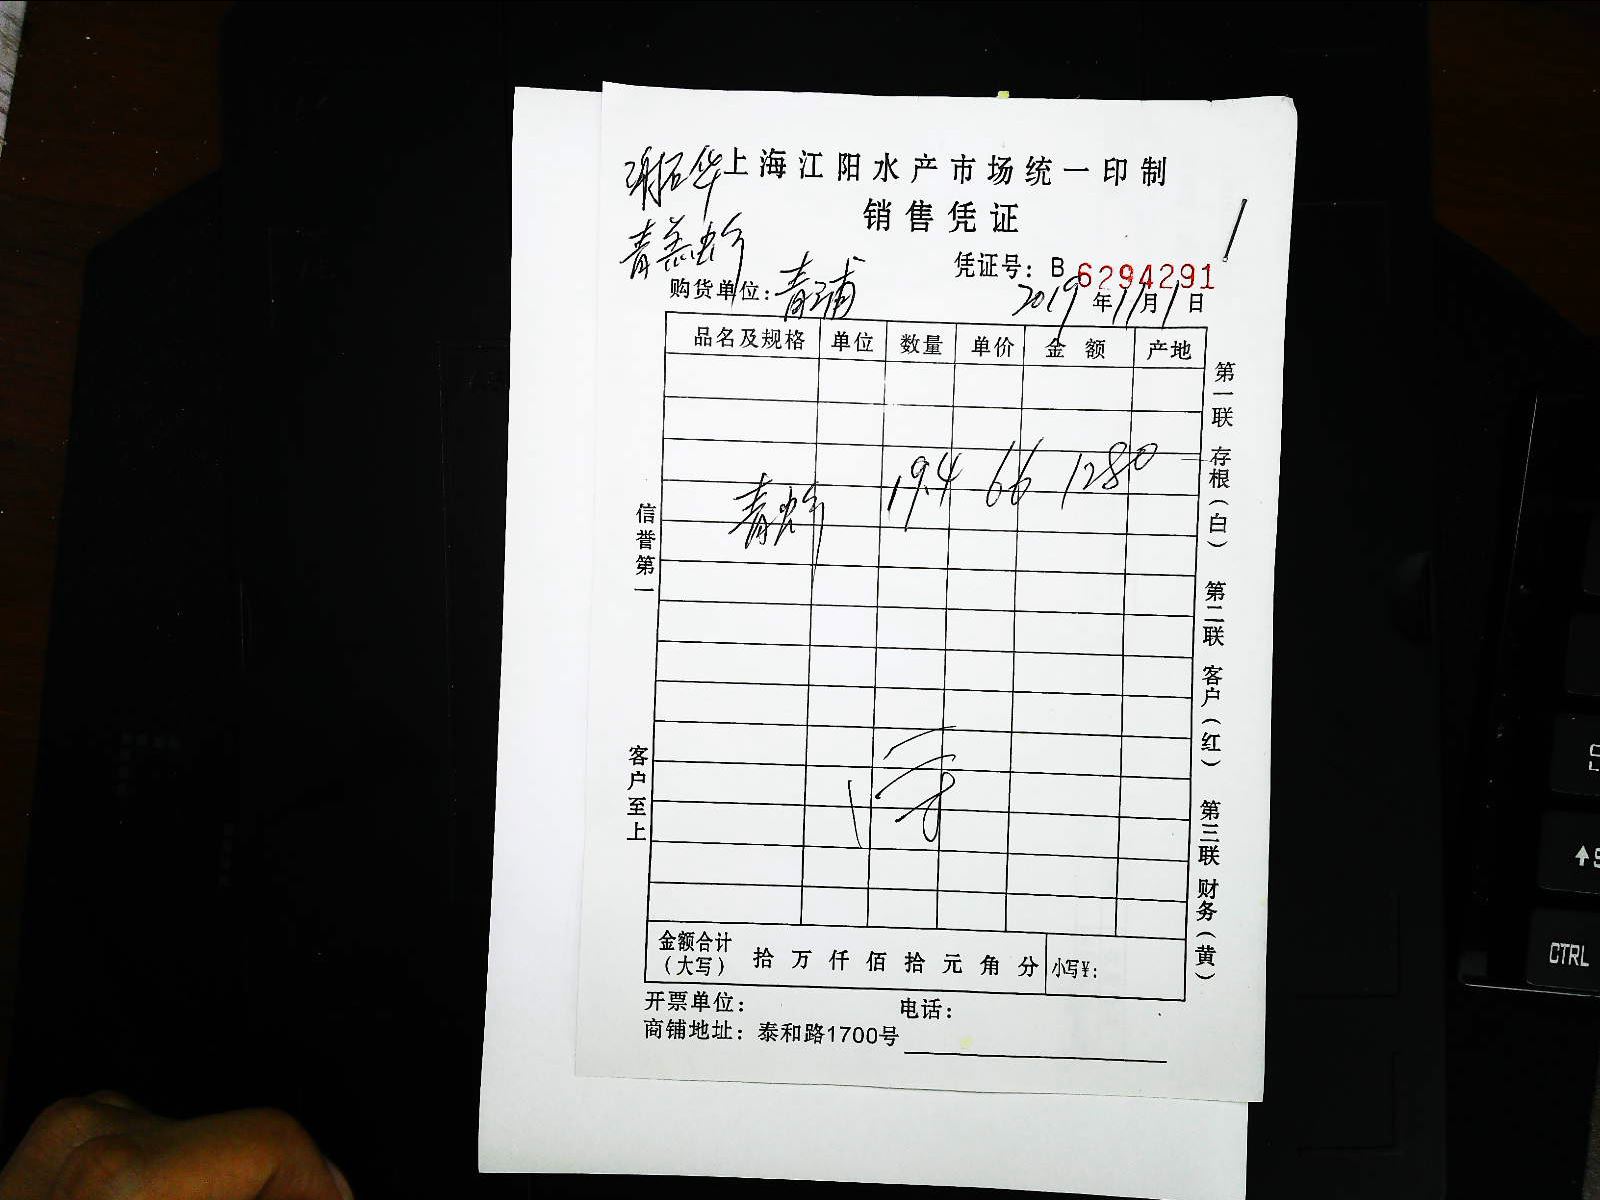 上海江阳水产市场统一印制
销售凭证
凭证号：B 6294291
购货单位：青浦
2019年11月1日
品名及规格 单位 数量 单价 金额 产地
青虾 19.4 66 1280
信誉第一
客户至上
第一联 存根（白） 第二联 客户（红） 第三联 财务（黄）
金额合计（大写） 拾 万 仟 佰 拾 元 角 分 小写¥：
开票单位： 电话：
商铺地址：泰和路1700号
CTRL